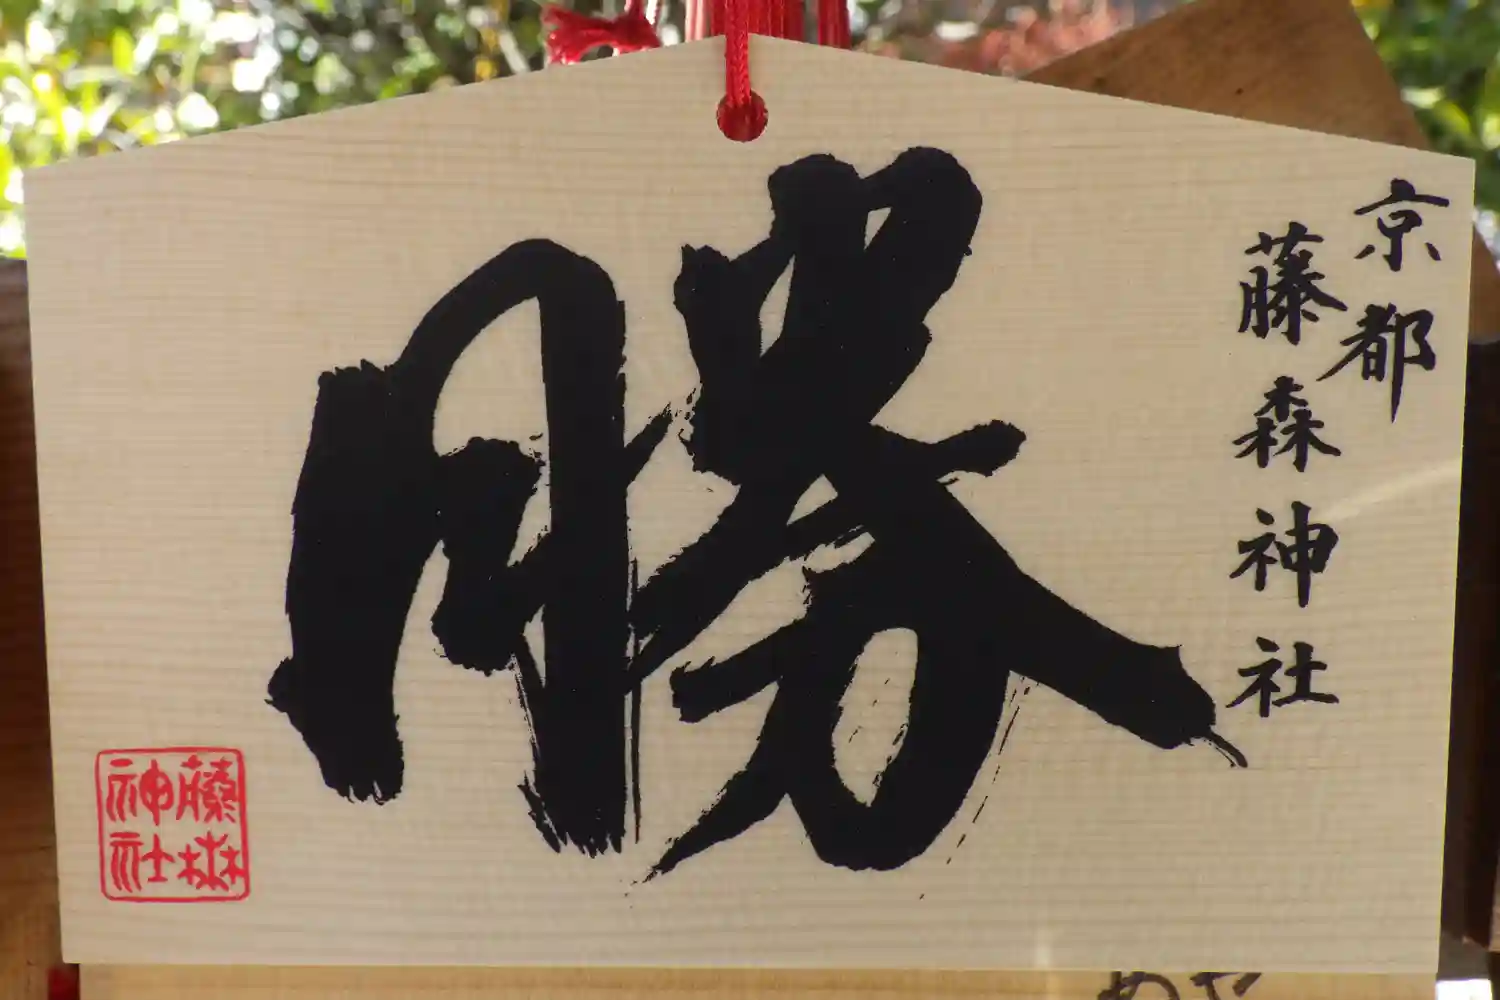 京都
藤森神社
勝
藤森
神社